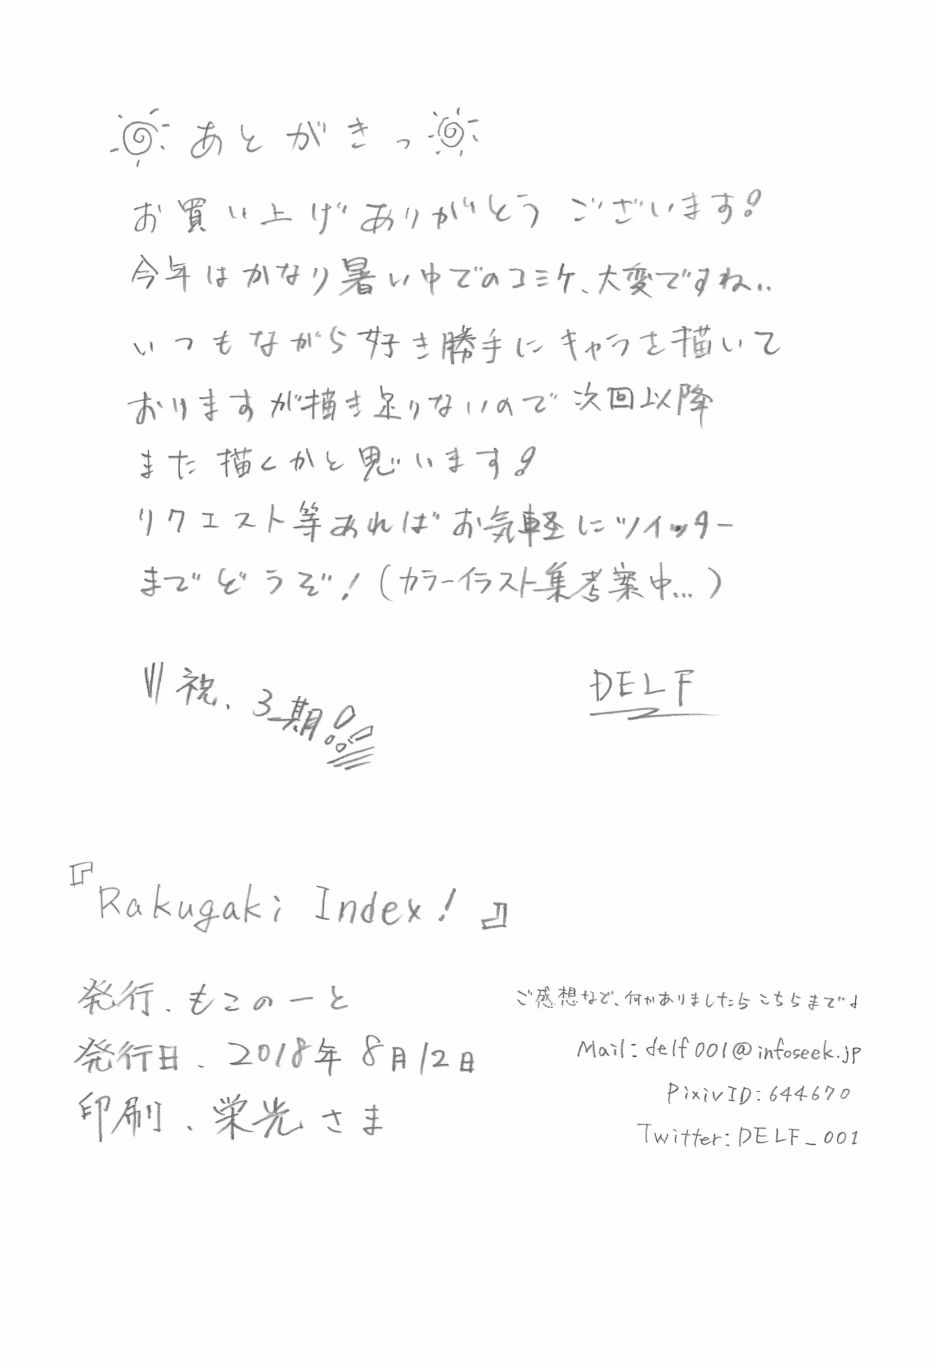 あとがきっ
お買い上げありがとうございます!
今年はかなり暑い中でのコミケ、大変ですね..
いつもながら好き勝手にキャラを描いて
おりますが描き足りないので次回以降
また描くかと思います!
リクエスト等あればお気軽にツイッター
までどうぞ!(カラーイラスト集考案中...)
祝、3期!!
DELF
『Rakugaki Index!』
発行、もこのーと
発行日、2018年8月12日
印刷、栄光さま
ご感想など、何かありましたらこちらまで♩
Mail:delf001@infoseek.jp
PixivID:644670
Twitter:DELF_001